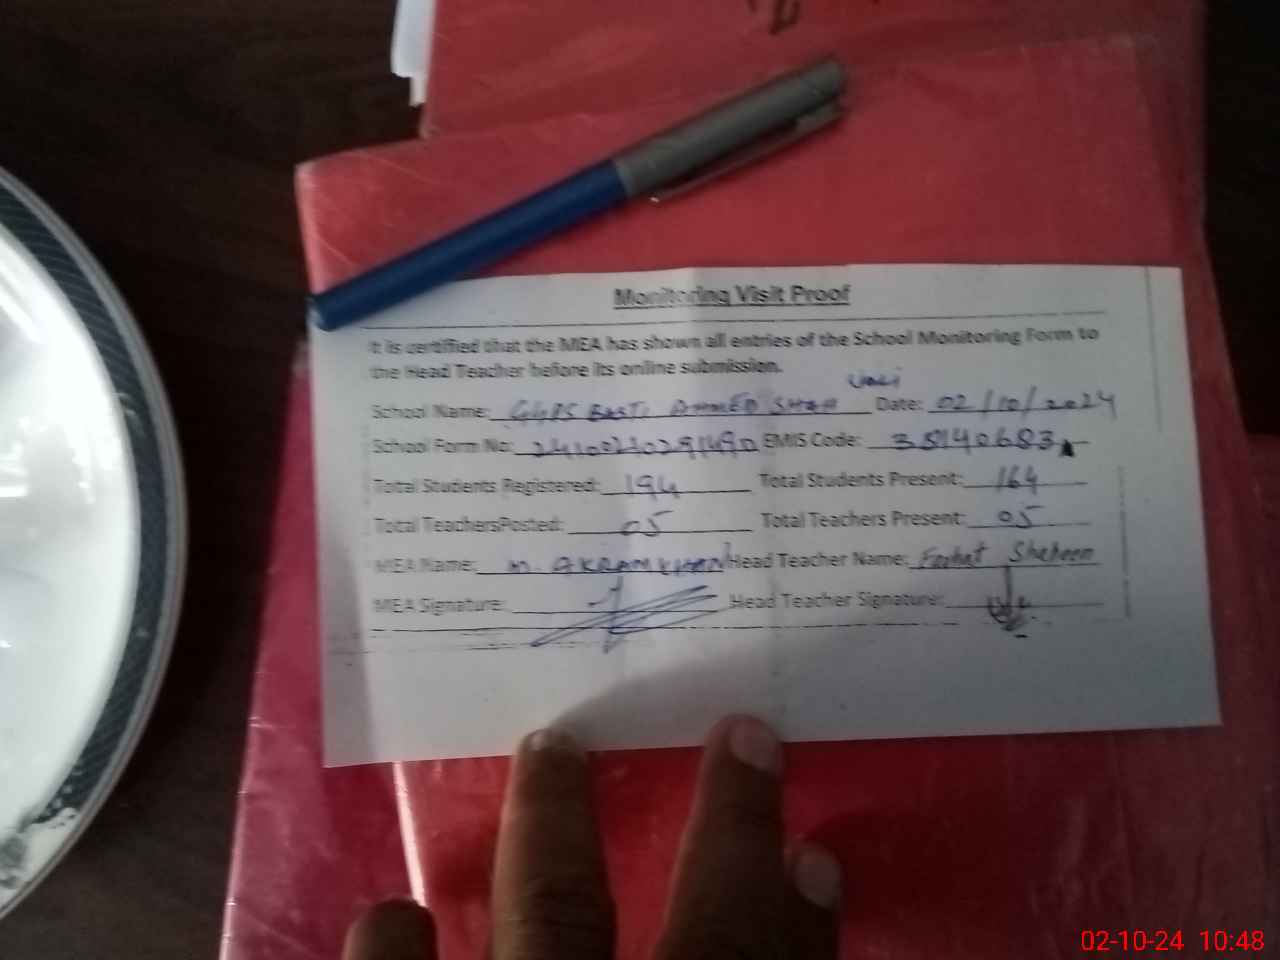 Monitoring Visit Proof
It is certified that the MEA has shown all entries of the School Monitoring Form to
the Head Teacher before its online submission.
School Name: GGPS BASTI AHMED SHAH Date: 02/10/2024
School Form No: EMIS Code: 38140683
Total Students Registered: 194 Total Students Present: 164
Total TeachersPosted: 05 Total Teachers Present: 05
MEA Name: M. AKRAM KHAN Head Teacher Name: Farhat Shaheen
MEA Signature: Head Teacher Signature:
02-10-24 10:48